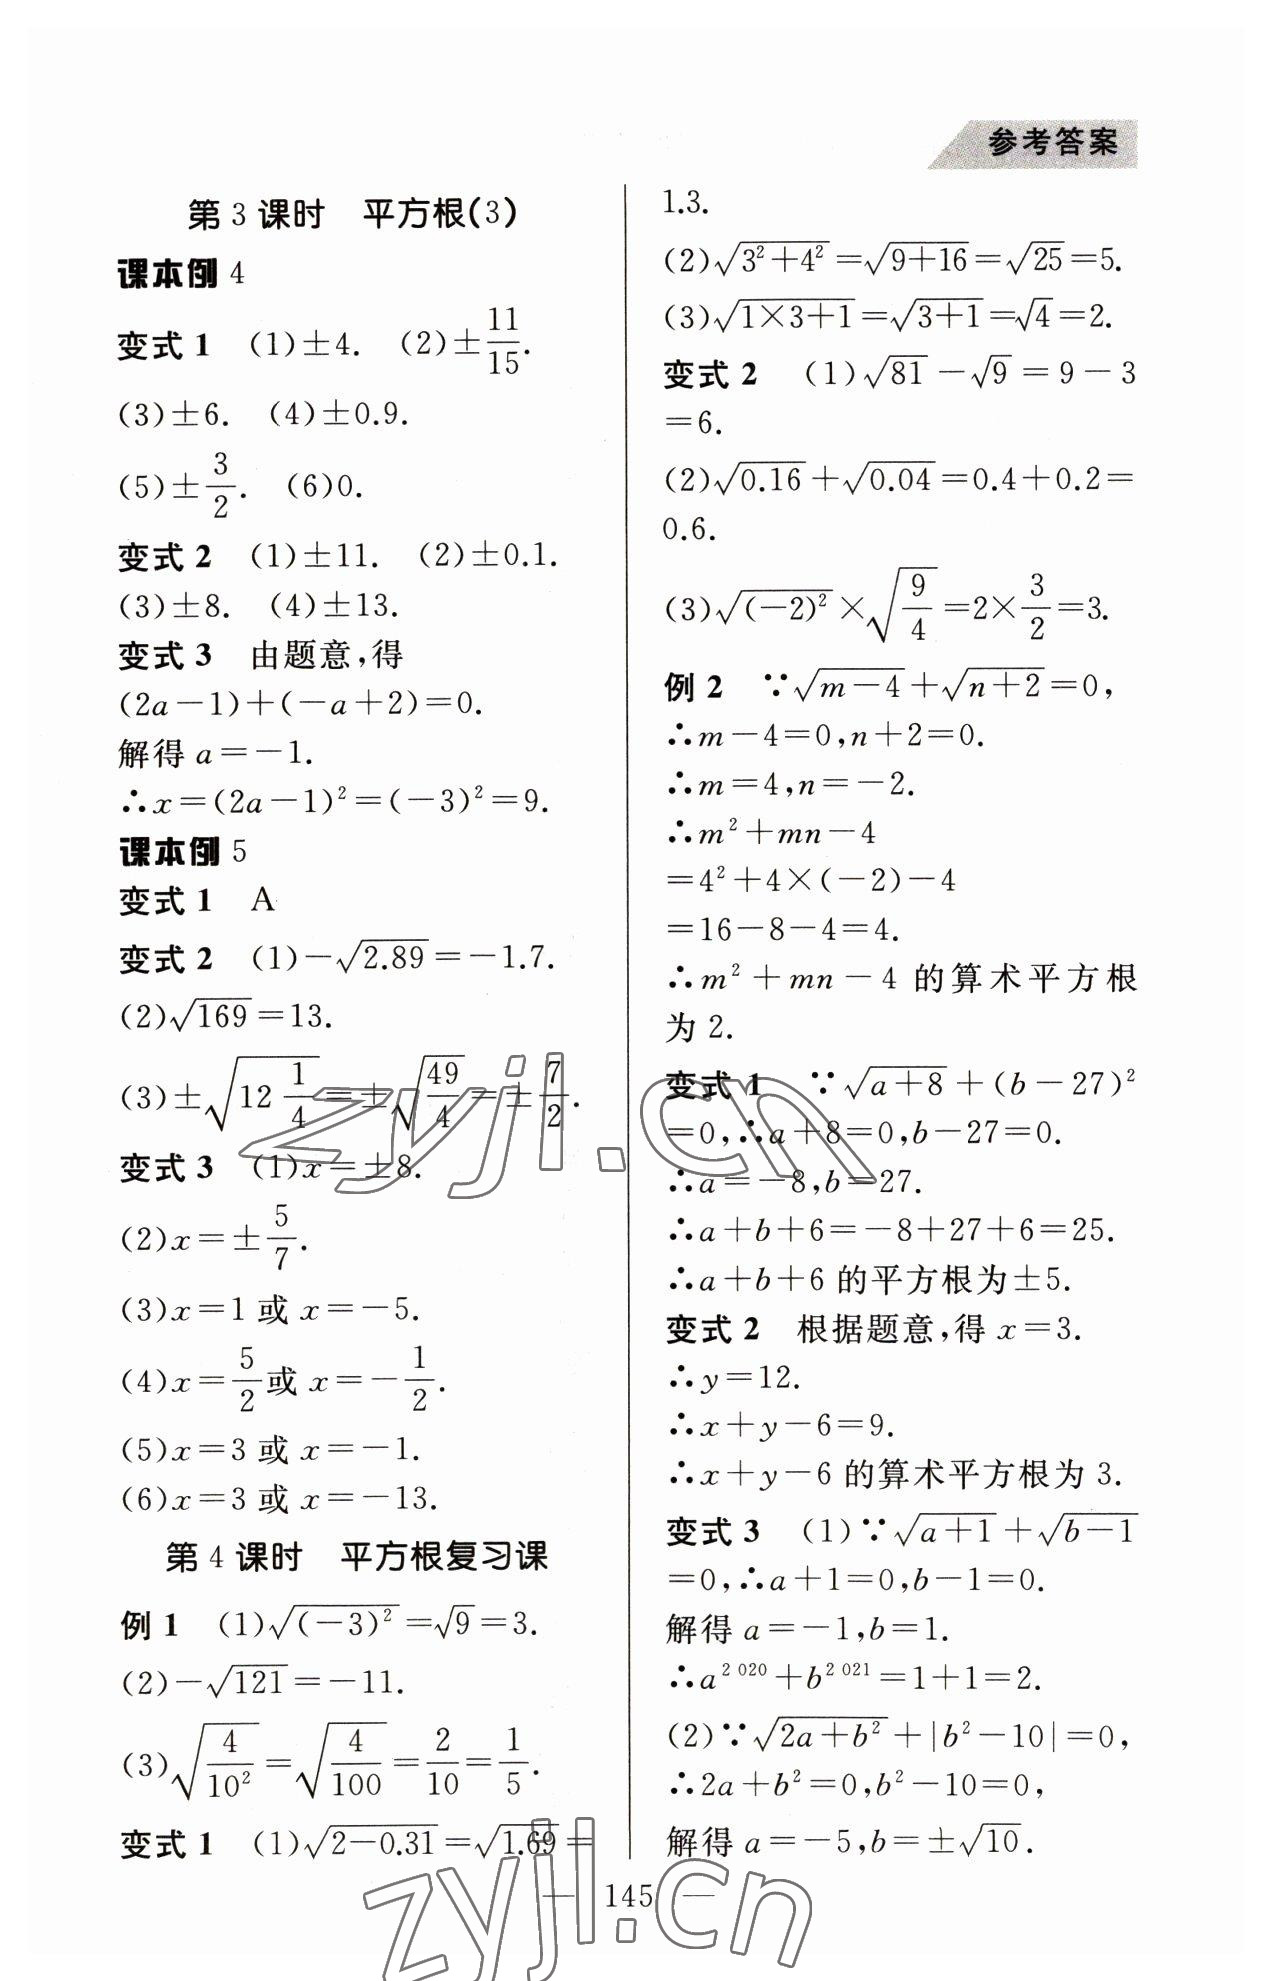 参考答案
第 3 课时　平方根(3)
课本例 4
变式 1　(1)±4.　(2)±11/15.
(3)±6.　(4)±0.9.
(5)±3/2.　(6)0.
变式 2　(1)±11.　(2)±0.1.
(3)±8.　(4)±13.
变式 3　由题意,得
(2a-1)+(-a+2)=0.
解得 a=-1.
∴x=(2a-1)²=(-3)²=9.
课本例 5
变式 1　A
变式 2　(1)-√2.89=-1.7.
(2)√169=13.
(3)±√(12 1/4)=±√(49/4)=±7/2.
变式 3　(1)x=±8.
(2)x=±5/7.
(3)x=1 或 x=-5.
(4)x=5/2 或 x=-1/2.
(5)x=3 或 x=-1.
(6)x=3 或 x=-13.
第 4 课时　平方根复习课
例 1　(1)√((-3)²)=√9=3.
(2)-√121=-11.
(3)√(4/10²)=√(4/100)=2/10=1/5.
变式 1　(1)√(2-0.31)=√1.69=
1.3.
(2)√(3²+4²)=√(9+16)=√25=5.
(3)√(1×3+1)=√(3+1)=√4=2.
变式 2　(1)√81-√9=9-3
=6.
(2)√0.16+√0.04=0.4+0.2=
0.6.
(3)√((-2)²)×√(9/4)=2×3/2=3.
例 2　∵√(m-4)+√(n+2)=0,
∴m-4=0,n+2=0.
∴m=4,n=-2.
∴m²+mn-4
=4²+4×(-2)-4
=16-8-4=4.
∴m²+mn-4 的算术平方根
为 2.
变式 1　∵√(a+8)+(b-27)²
=0,∴a+8=0,b-27=0.
∴a=-8,b=27.
∴a+b+6=-8+27+6=25.
∴a+b+6 的平方根为±5.
变式 2　根据题意,得 x=3.
∴y=12.
∴x+y-6=9.
∴x+y-6 的算术平方根为 3.
变式 3　(1)∵√(a+1)+√(b-1)
=0,∴a+1=0,b-1=0.
解得 a=-1,b=1.
∴a²⁰²⁰+b²⁰²¹=1+1=2.
(2)∵√(2a+b²)+|b²-10|=0,
∴2a+b²=0,b²-10=0,
解得 a=-5,b=±√10.
— 145 —
zyjl.cn
zyjl.cn